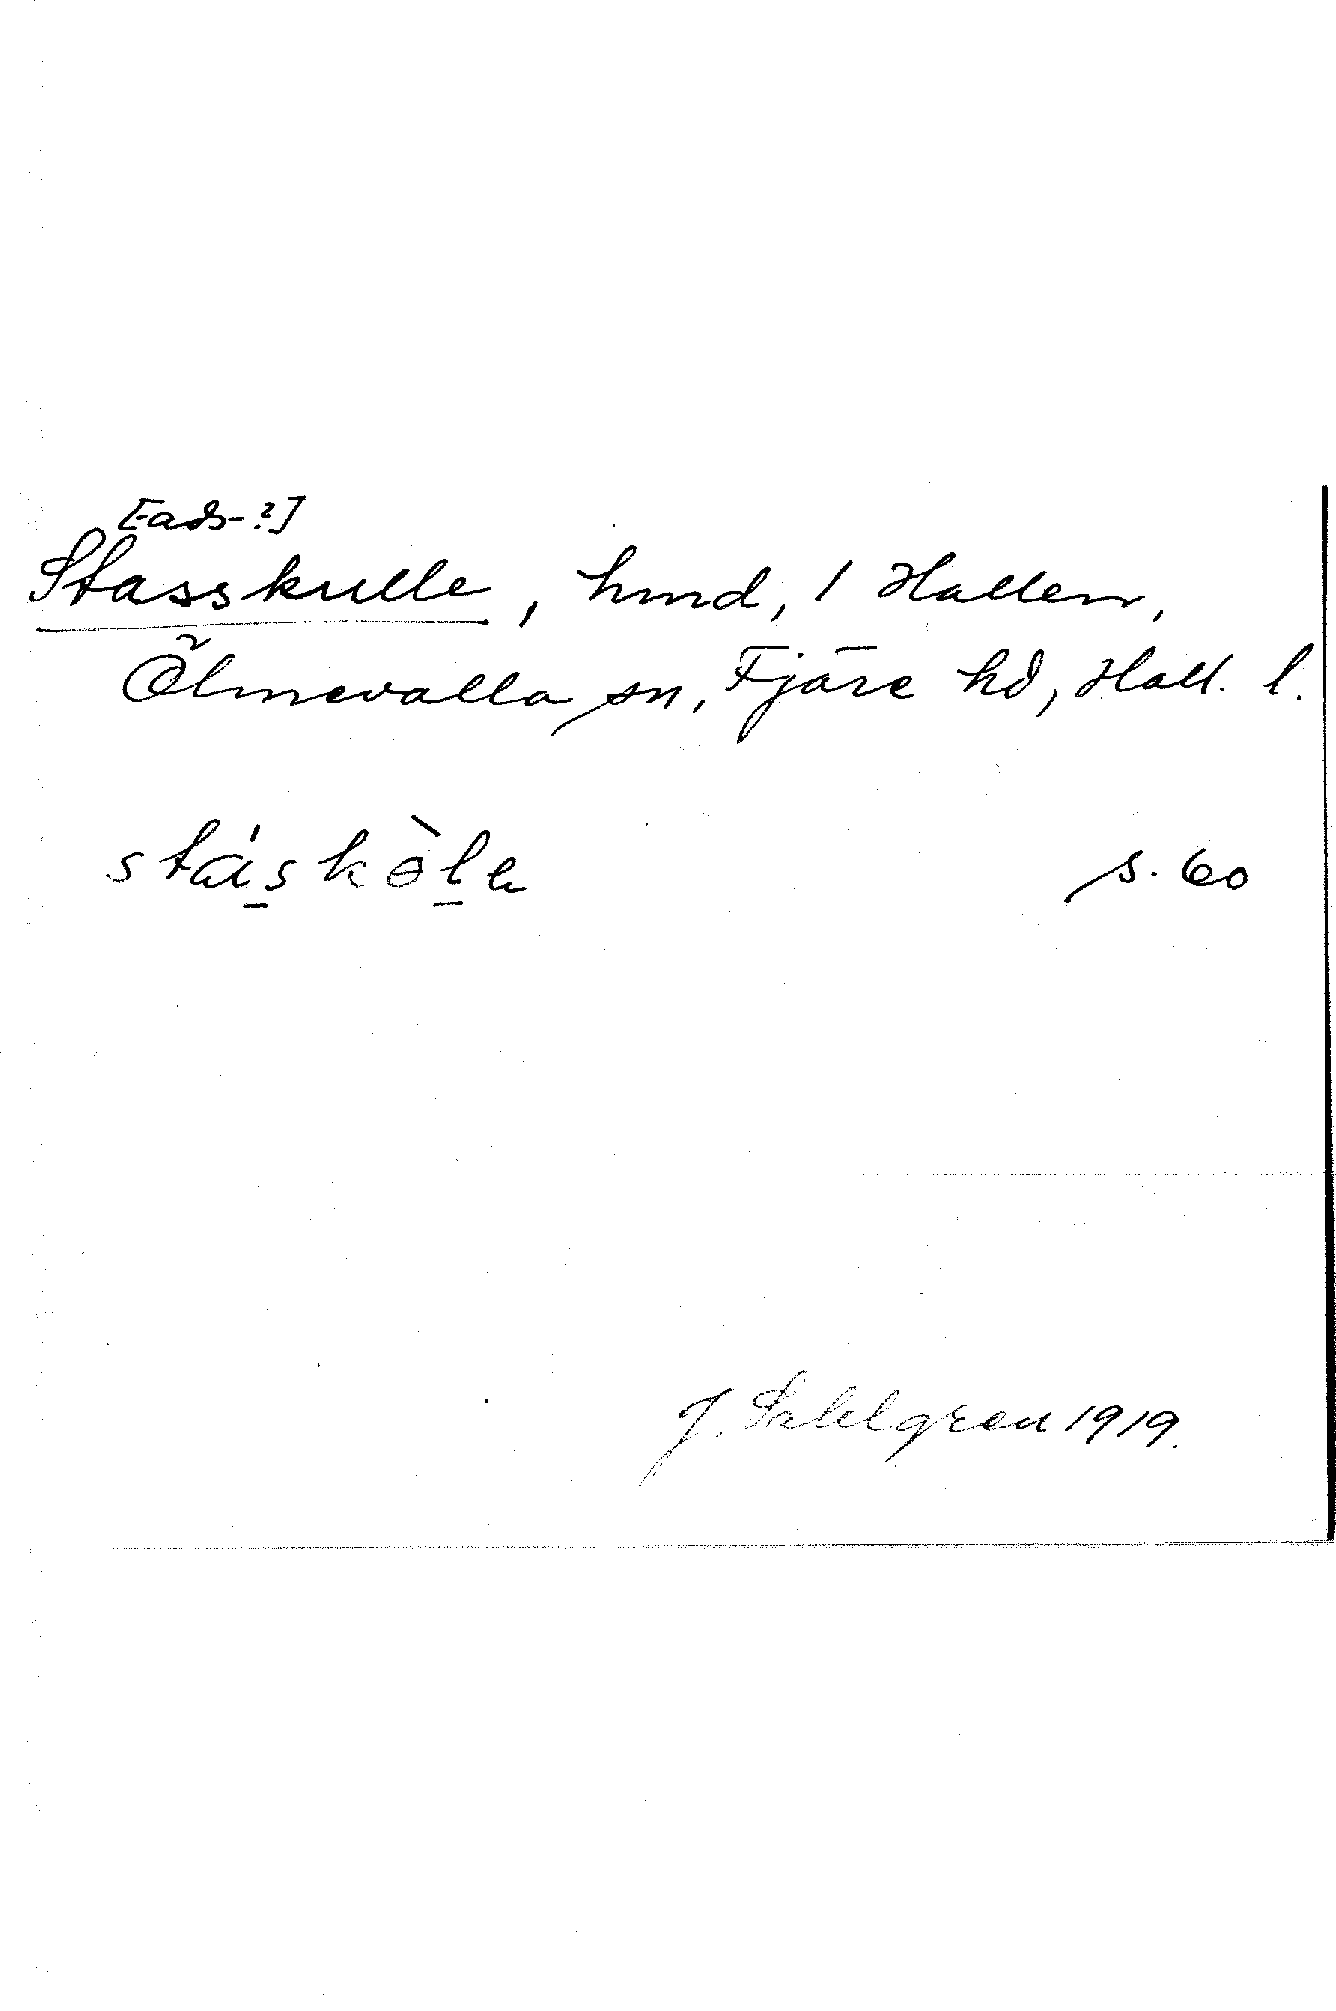 [-ads-?]
Stasskulle, hmd, 1 Hallen,
Ölmevalla sn, Fjäre hd, Hall. l.
stásk̀ola s. 60
J. Sahlgren 1919.